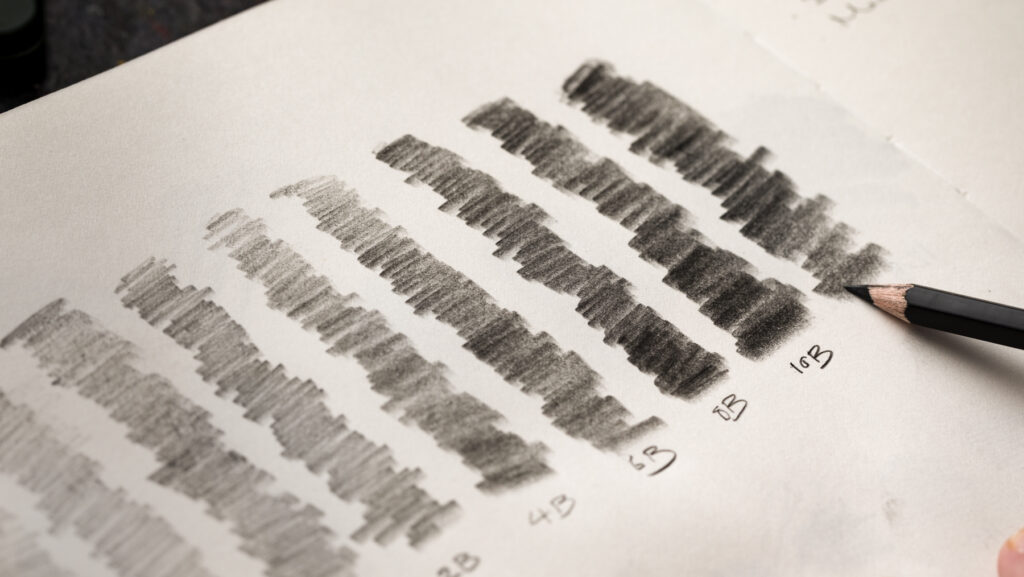 2B
4B
6B
8B
10B